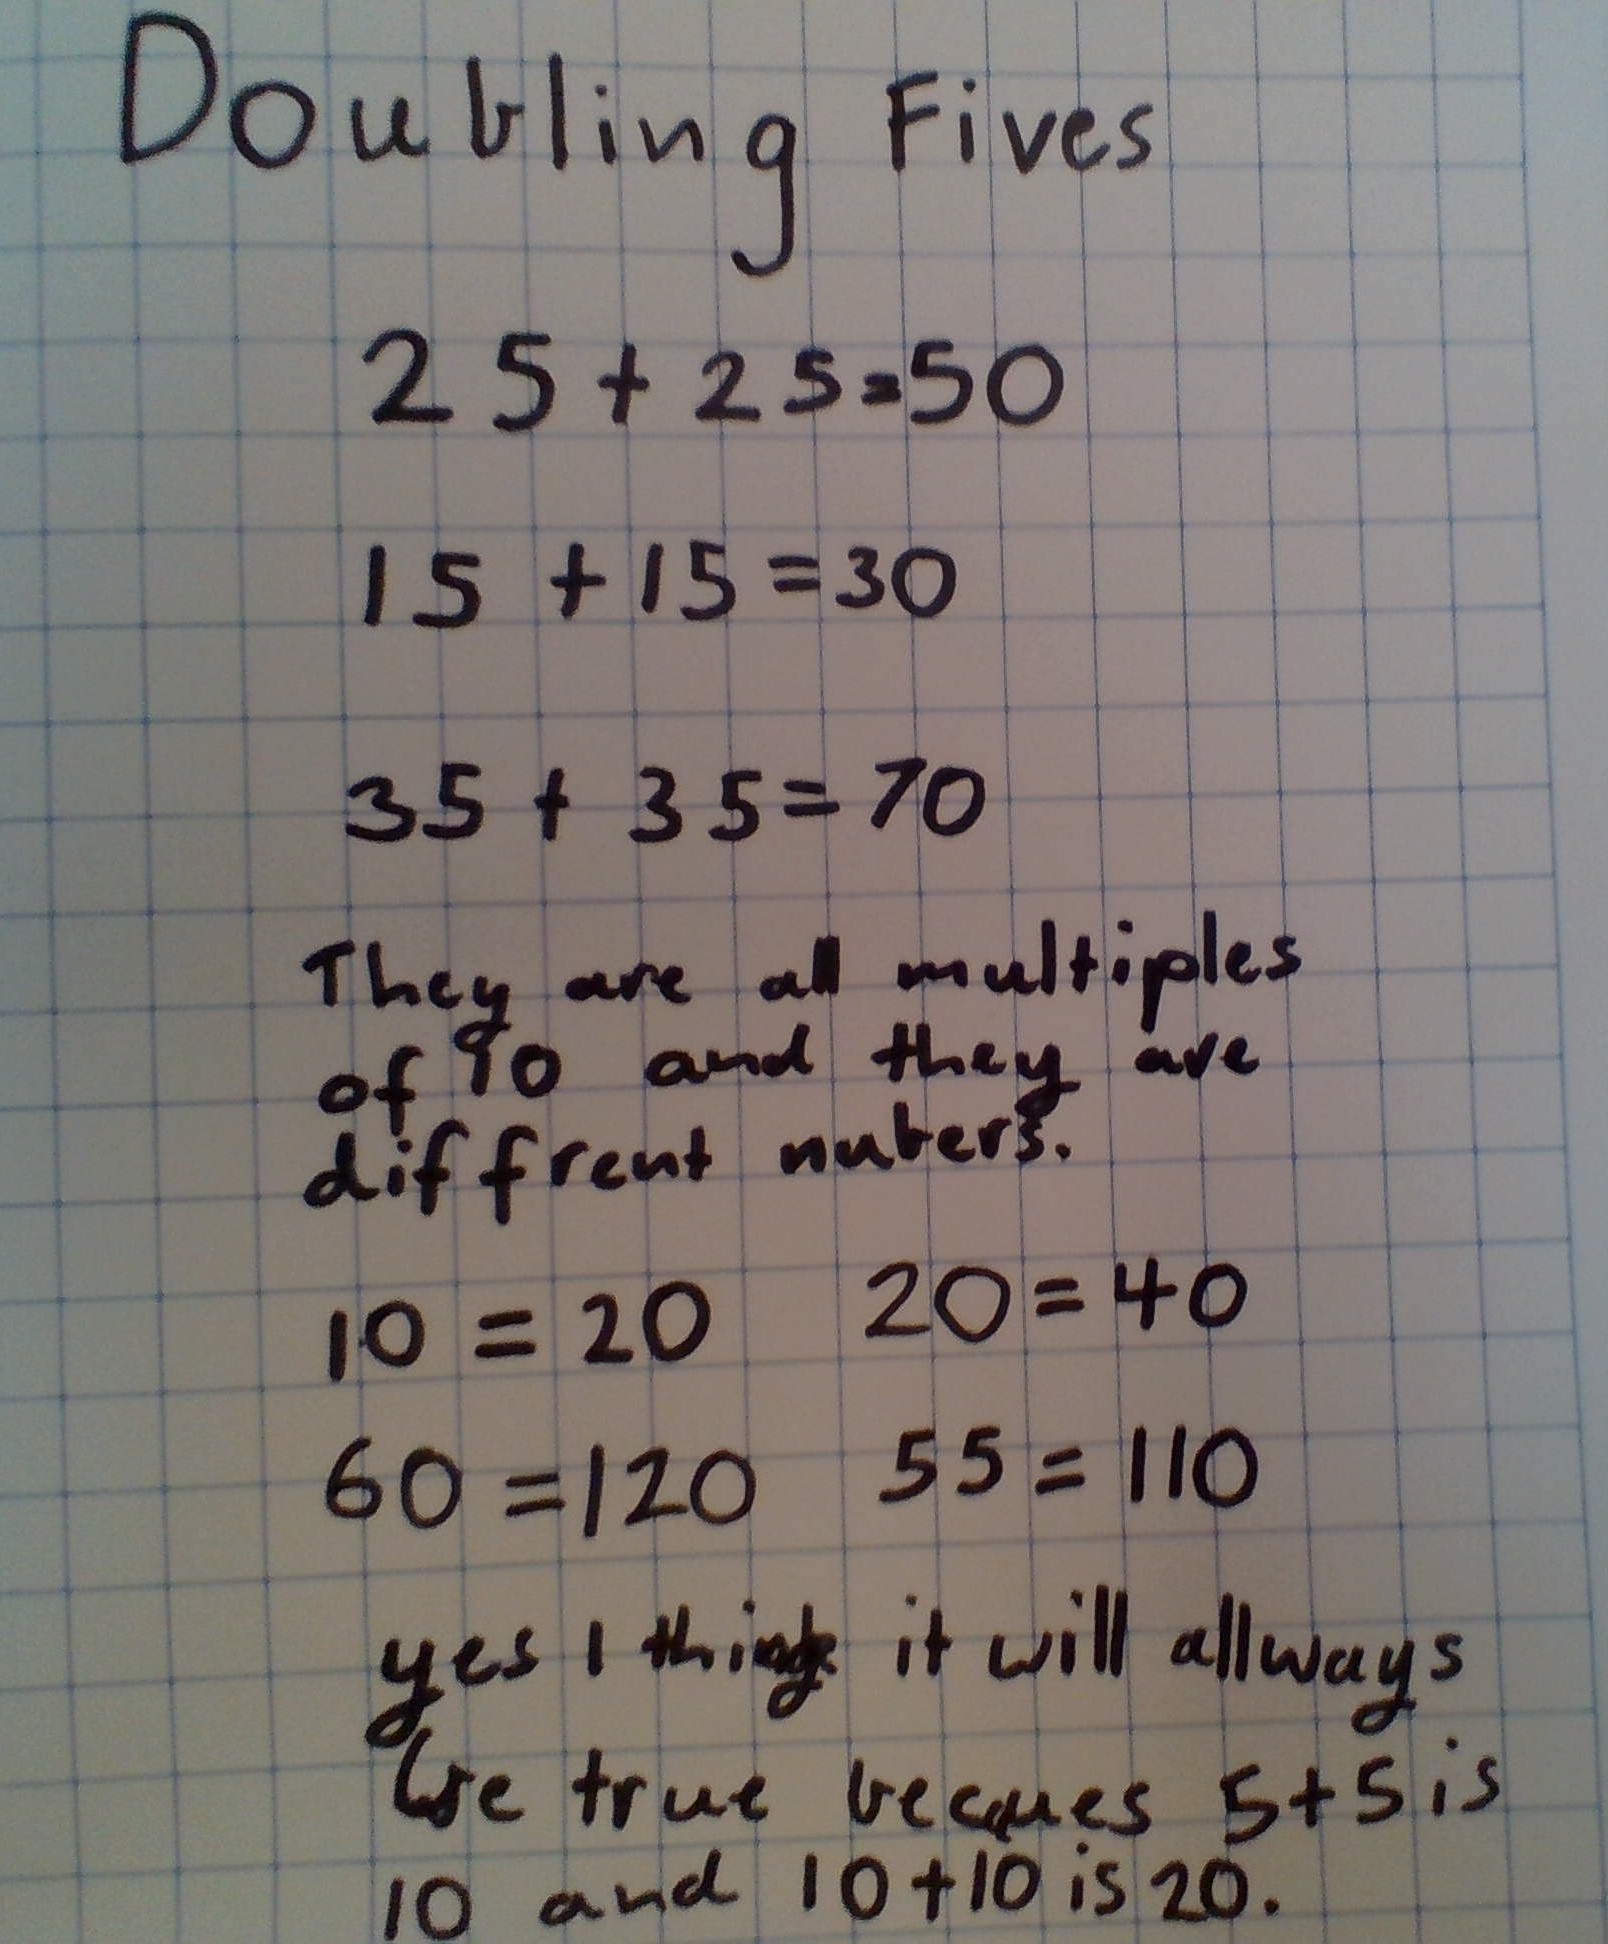 Doubling Fives
25+25=50
15+15=30
35+35=70
They are all multiples
of 10 and they are
diffrent nubers.
10=20 20=40
60=120 55=110
yes I think it will allways
be true becques 5+5 is
10 and 10+10 is 20.